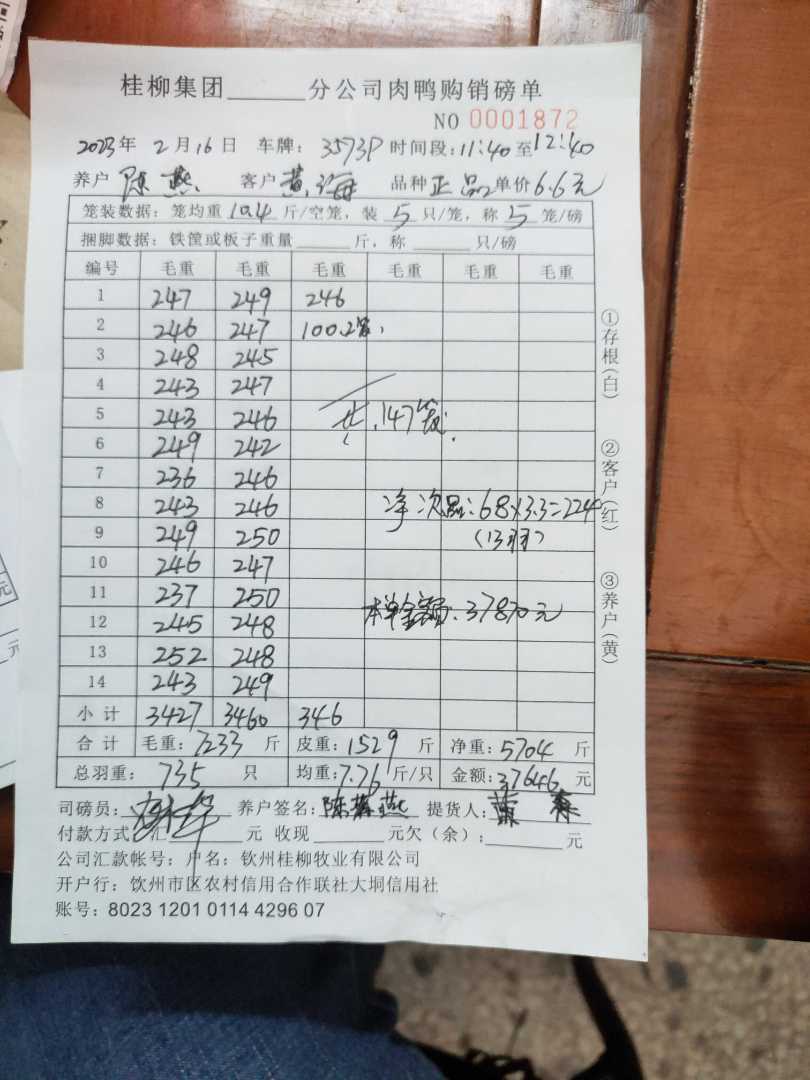 桂柳集团______分公司肉鸭购销磅单
NO 0001872
2023年 2月16日 车牌: 3573P 时间段: 11:40至12:40
养户 陈燕 客户 黄海 品种 正品 单价6.6元
笼装数据: 笼均重 10.4 斤/空笼, 装 5 只/笼, 称 5 笼/磅
捆脚数据: 铁筐或板子重量______斤, 称______只/磅
编号 毛重 毛重 毛重 毛重 毛重 毛重
1 247 249 246
2 246 247 100.2笼
3 248 245
4 243 247
5 243 246 共.147笼.
6 249 242
7 236 246
8 243 246 净次品:68×3.3=224
9 249 250 (13羽)
10 246 247
11 237 250 本单金额:37870元
12 245 248
13 252 248
14 243 249
小计 3427 3460 346
合计 毛重: 7233 斤 皮重: 1529 斤 净重: 5704 斤
总羽重: 735 只 均重: 7.76 斤/只 金额: 37646 元
司磅员: 养户签名: 陈燕 提货人:
付款方式: 汇______元 收现______元欠(余):______元
公司汇款帐号: 户名: 钦州桂柳牧业有限公司
开户行: 饮州市区农村信用合作联社大垌信用社
账号: 8023 1201 0114 4296 07
①存根(白)
②客户(红)
③养户(黄)
元
元